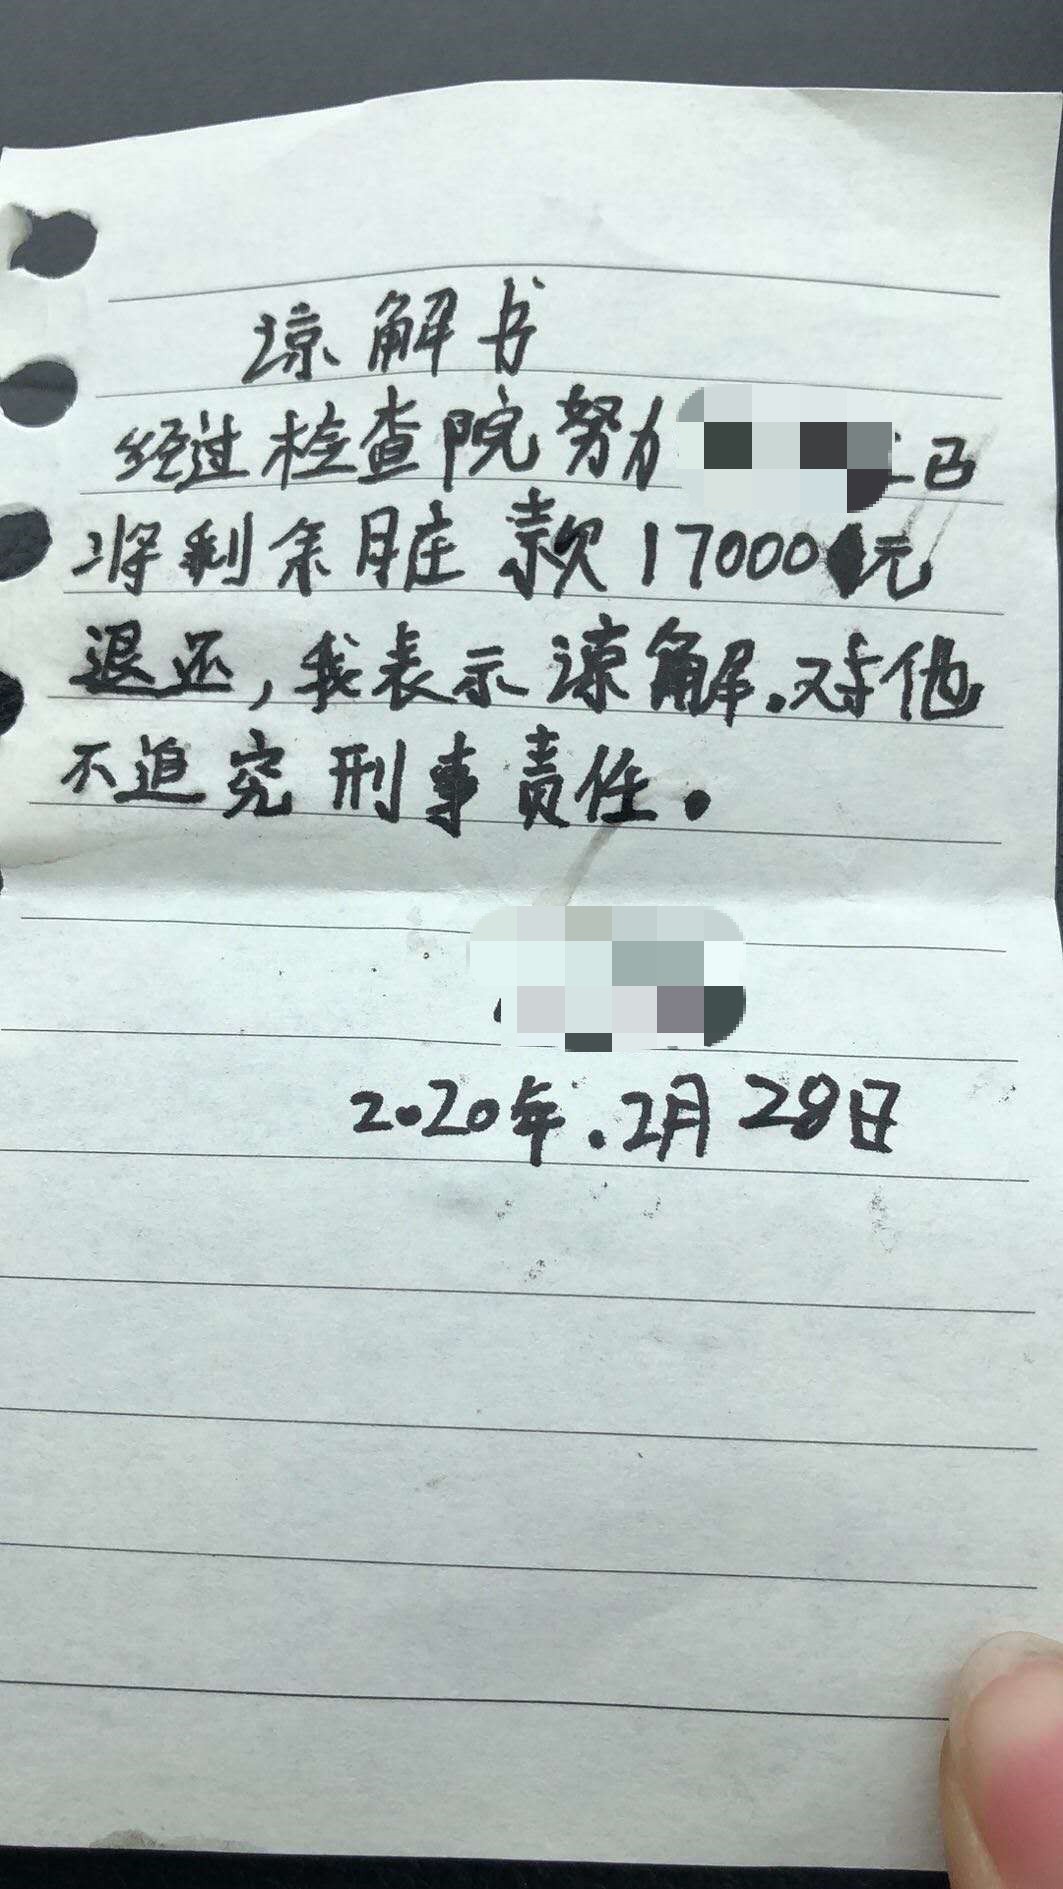 谅解书
经过检查院努力 已
将剩余脏款17000元
退还,我表示谅解.对他
不追究刑事责任.
2020年.2月28日